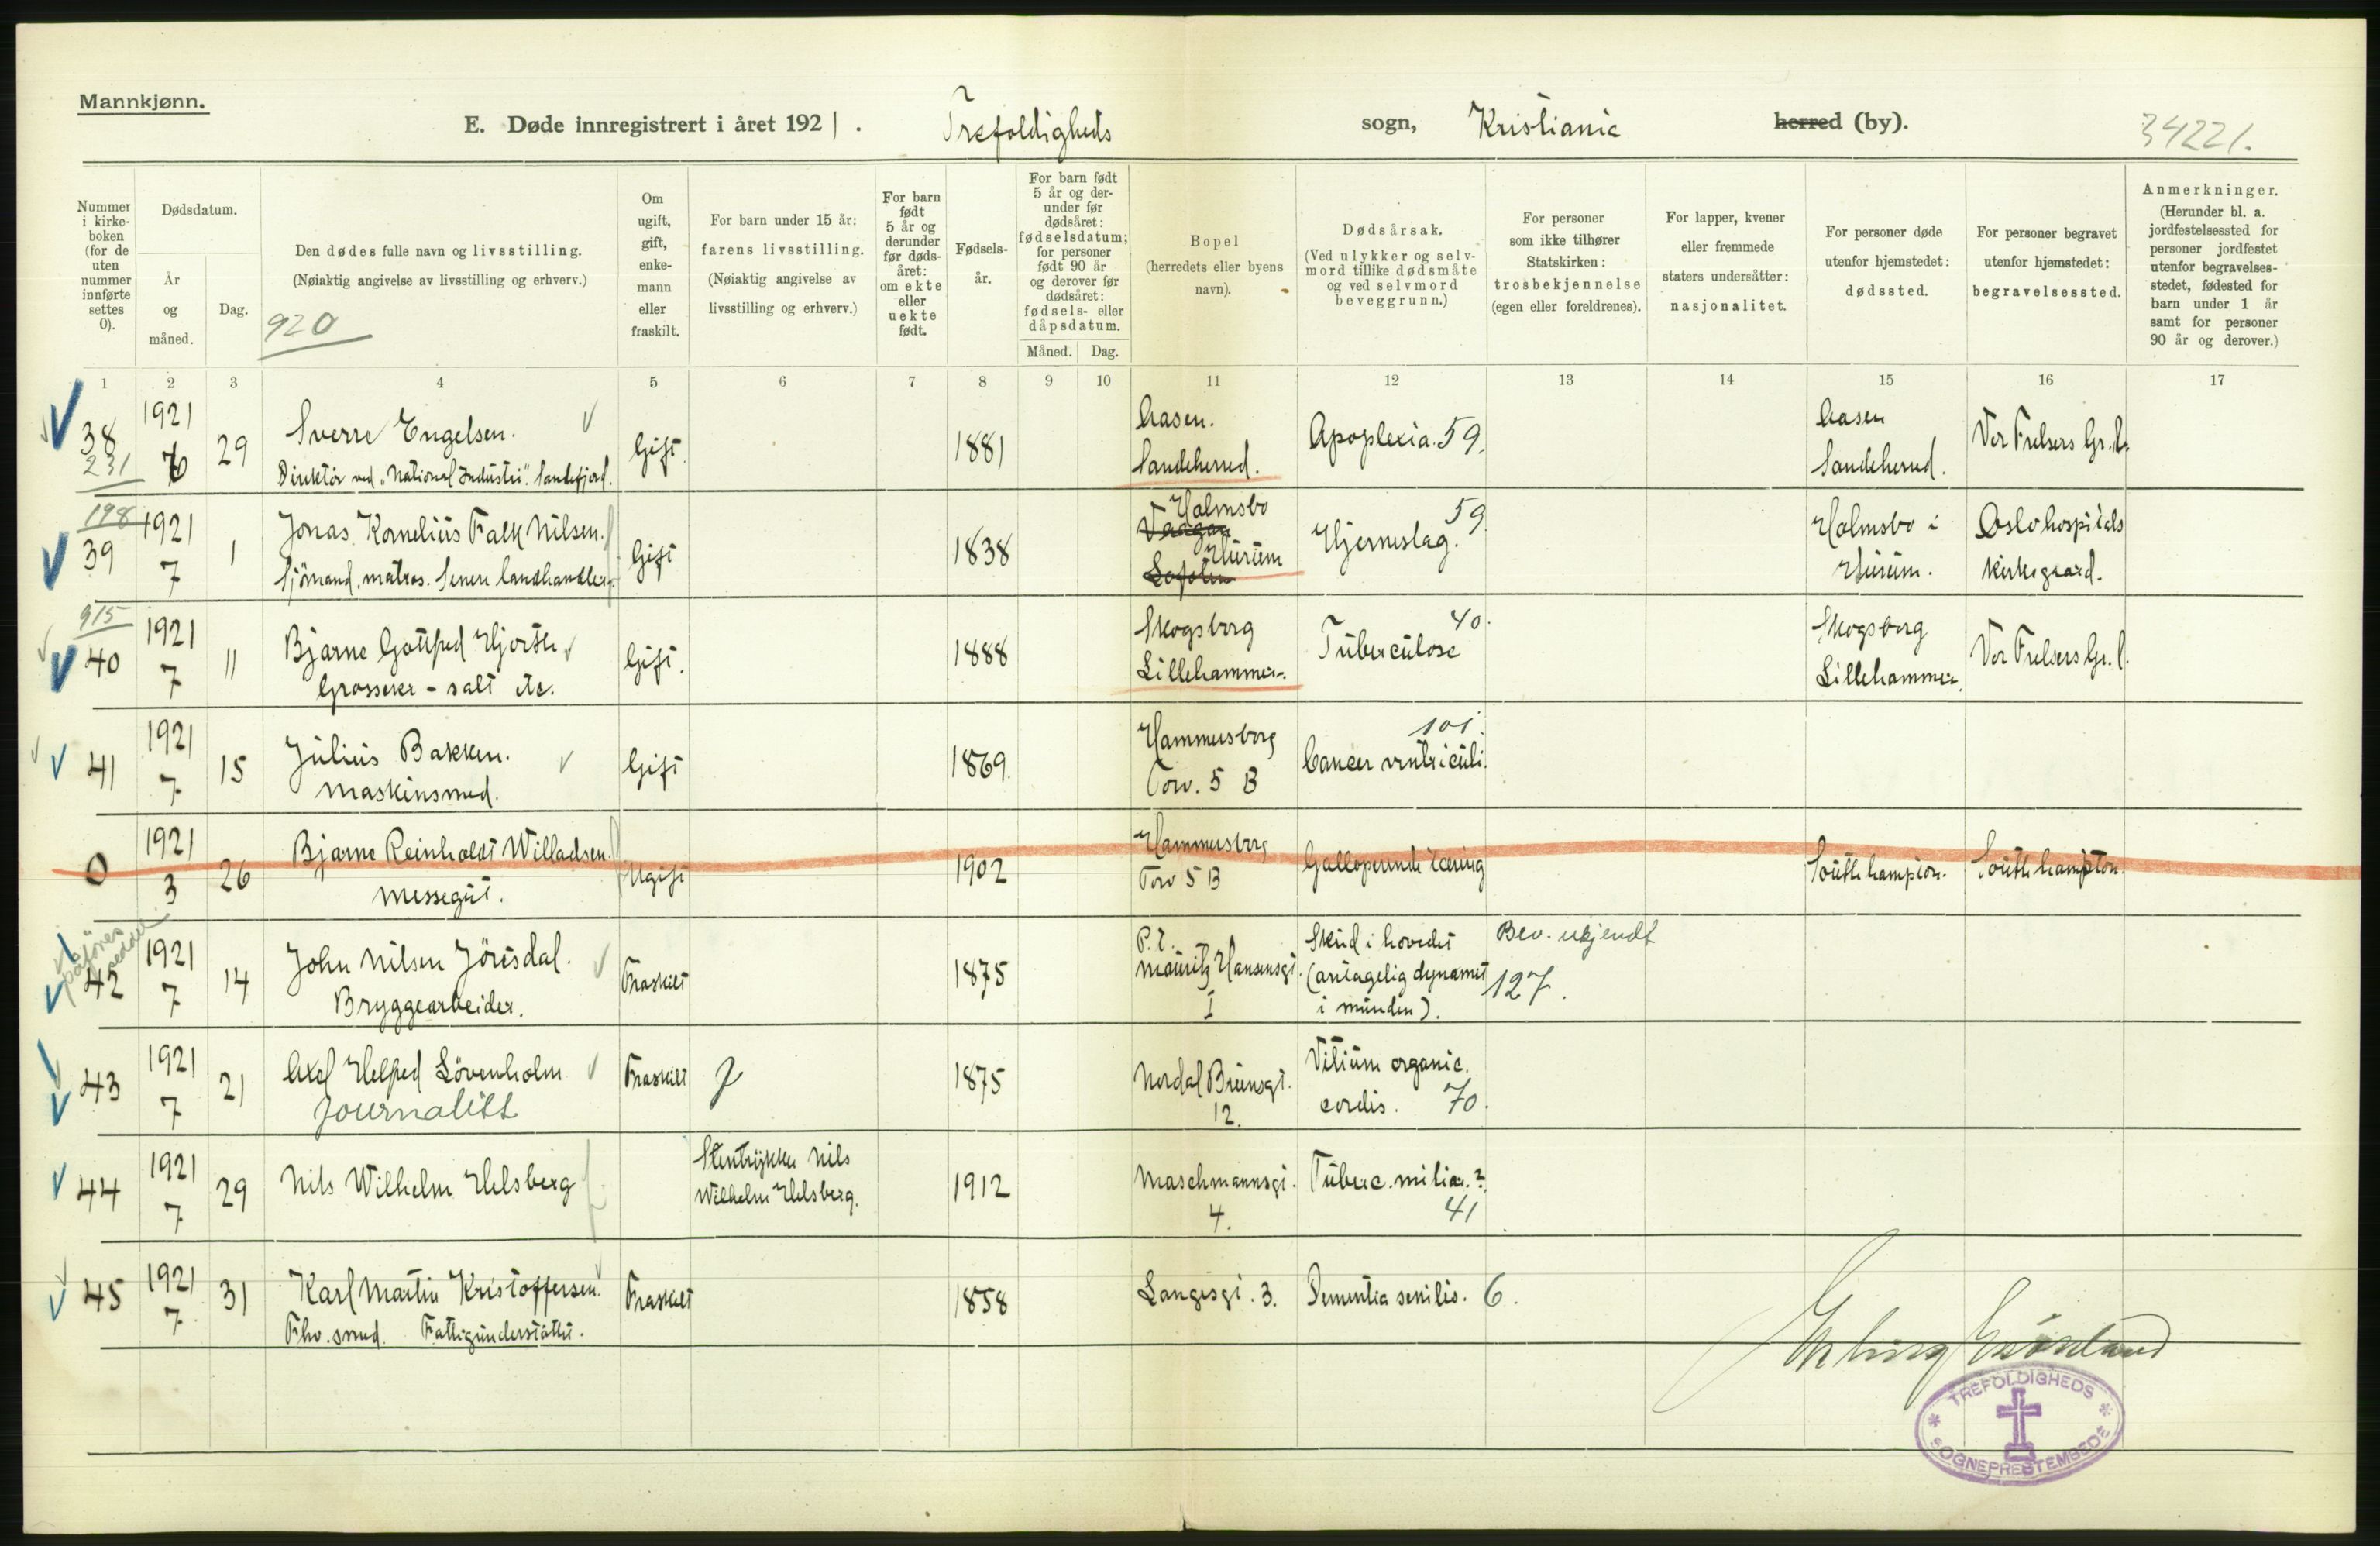 Mannkjønn.
E. Døde innregistrert i året 1921. Trefoldigheds sogn, Kristiania herred (by). 34221.
Nummer i kirke-boken (for de uten nummer innførte settes 0).
Dødsdatum.
År og måned.
Dag.
Den dødes fulle navn og livsstilling.
(Nøiaktig angivelse av livsstilling og erhverv.)
920
Om ugift, gift, enke-mann eller fraskilt.
For barn under 15 år: farens livsstilling. (Nøiaktig angivelse av livsstilling og erhverv.)
For barn født 5 år og derunder før døds-året: om ekte eller uekte født.
Fødsels-år.
For barn født 5 år og der-under før dødsåret: fødselsdatum; for personer født 90 år og derover før dødsåret: fødsels- eller dåpsdatum.
Måned. Dag.
Bopel (herredets eller byens navn).
Dødsårsak. (Ved ulykker og selv-mord tillike dødsmåte og ved selvmord beveggrunn.)
For personer som ikke tilhører Statskirken: trosbekjennelse (egen eller foreldrenes).
For lapper, kvener eller fremmede staters undersåtter: nasjonalitet.
For personer døde utenfor hjemstedet: dødssted.
For personer begravet utenfor hjemstedet: begravelsessted.
Anmerkninger. (Herunder bl. a. jordfestelsessted for personer jordfestet utenfor begravelses-stedet, fødested for barn under 1 år samt for personer 90 år og derover.)
1 2 3 4 5 6 7 8 9 10 11 12 13 14 15 16 17
38 231 1921 6 29 Sverre Engelsen. Gift. 1881 Aasen. Apoplexia. 59. Aasen Vor Frelsers Gr.
Direktör ved "National Industri". Sandefjord. Sandeherred. Sandeherred.
198 39 1921 7 1 Jonas Kornelius Falk Nilsen. Gift 1838 Holmsbo Hurum Hjerneslag. 59. Holmsbo i Oslo hospitals
Sjömand, matros. Senere landhandler. Hurum. kirkegaard.
915 40 1921 7 11 Bjarne Gottfred Hjorth Gift. 1888 Skogsberg Tuberculose 40. Skogsberg Vor Frelsers Gr.
Grosserer - salt etc. Lillehammer. Lillehammer.
41 1921 7 15 Julius Bakken. Gift 1869. Hammersborg Cancer ventriculi. 101.
Maskinsmed. Torv. 5 B
0 1921 3 26 Bjarne Reinholdt Willadsen. Ugift 1902 Hammersborg Galloperende tæring Southhampton. Southhampton.
Messegut. Torv 5 B
42 1921 7 14 John Nilsen Jörisdal. Fraskilt 1875 P.t. Mauritz Hansensgt. 1 Skud i hovedet Bev. ukjendt
Bryggearbeider. (antagelig dynamit 127.
i munden).
43 1921 7 21 Axel Helfred Lövenholm Fraskilt 1875 Nordal Brunsgt. 12. Vitium organic.
Journalist cordis. 70.
44 1921 7 29 Nils Wilhelm Helsberg Stentrykker Nils 1912 Maschmannsgt. Tuberc. miliar. ?
Wilhelm Helsberg. 4. 41
45 1921 7 31 Karl Martin Kristoffersen. Fraskilt 1858 Langesgt. 3. Dementia senilis. 6.
Fhv. smed. Fattigunderstöttet.
TREFOLDIGHEDS
SOGNEPRESTEMBEDE